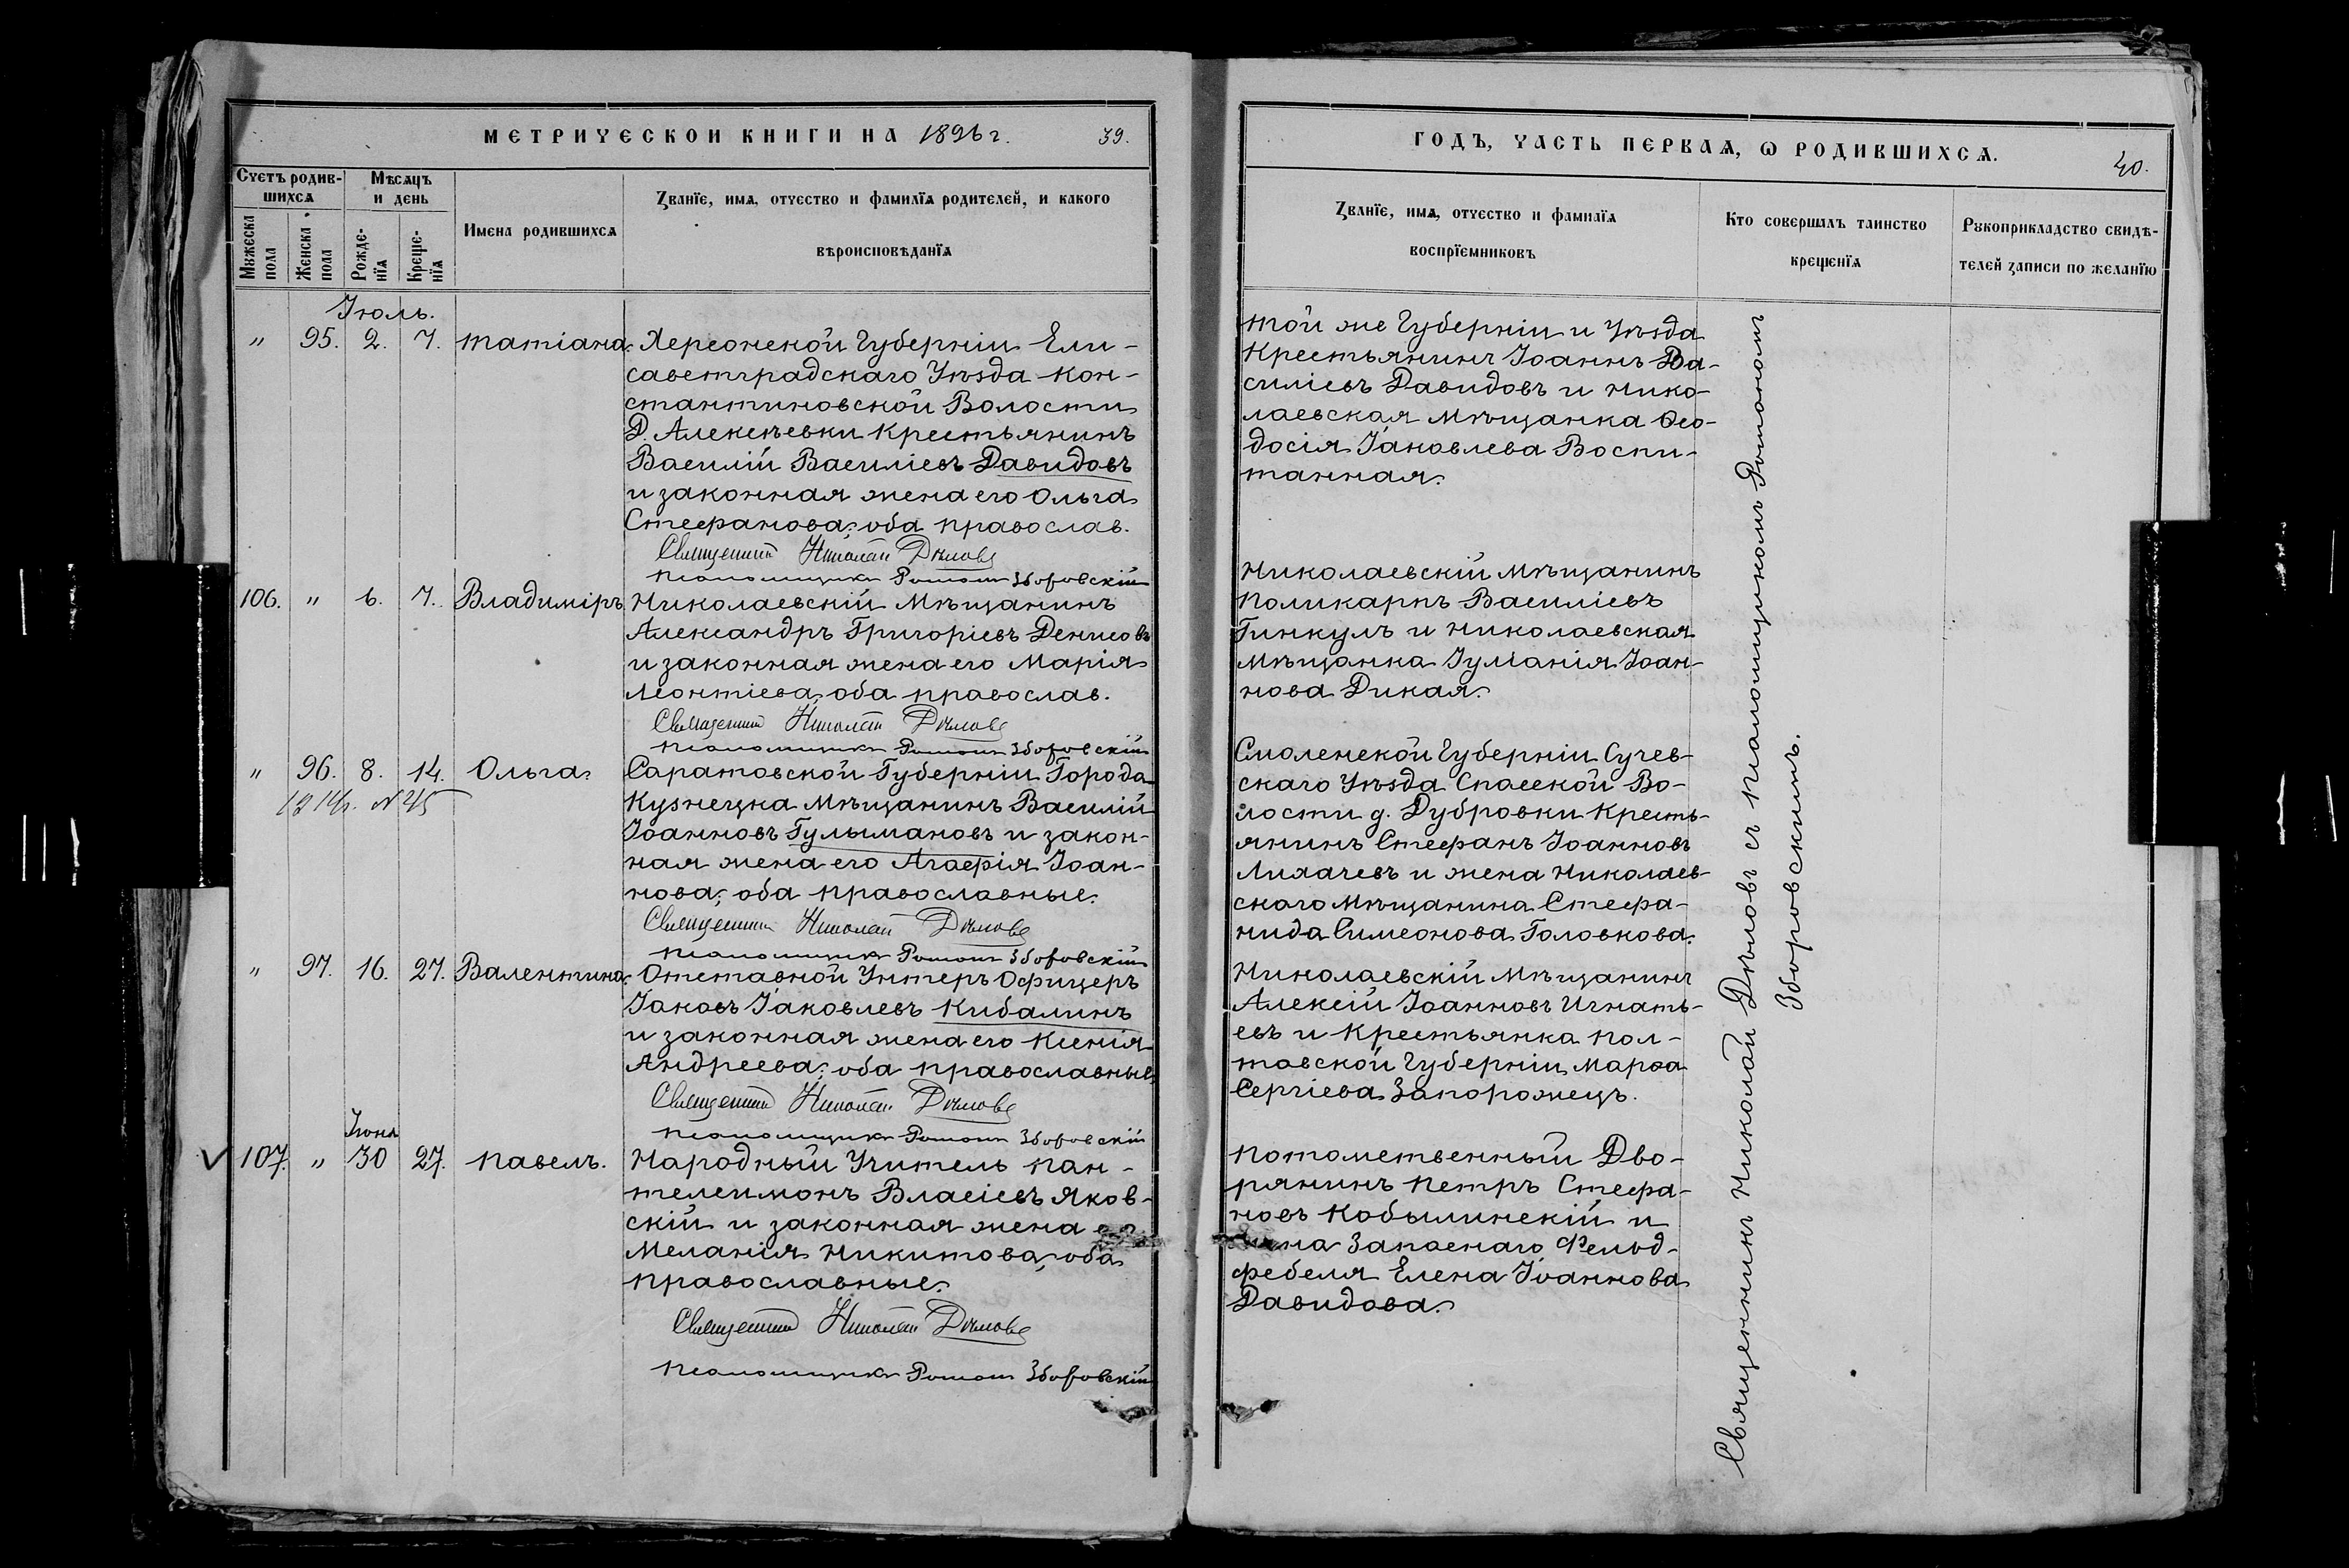 МЕТРИЧЕСКОИ КНИГИ НА 1896 г. 39.
Счетъ родив-
шихсѧ
Мѣсѧцъ
и день
Мꙋжеска
пола
Женска
пола
Рожде-
нїѧ
Креще-
нїѧ
Имена родившихсѧ
Званїе, имѧ, отчество и фамилїѧ родителей, и какого
вѣроисповѣданїѧ
Іюль.
" 95. 2. 7. Татіана.
Херсонской Губерніи Ели-
саветградскаго Уѣзда Кон-
стантиновской Волости
Д. Алексѣевки Крестьянинъ
Василій Василіевъ Давидовъ
и законная жена его Ольга
Стефанова; оба православ.
Священникъ Николай Дѣлове
Псаломщикъ Романъ Зборовскій
106. " 6. 7. Владиміръ
Николаевскій Мѣщанинъ
Александръ Григоріевъ Денисовъ
и законная жена его Марія
Леонтіева, оба православ.
Священникъ Николай Дѣлове
Псаломщикъ Романъ Зборовскій
" 96. 8. 14. Ольга.
N 45
Саратовской Губерніи Города
Кузнецка Мѣщанинъ Василій
Іоанновъ Гулымановъ и закон-
ная жена его Агафія Іоан-
нова; оба православные.
Священникъ Николай Дѣлове
Псаломщикъ Романъ Зборовскій
" 97. 16. 27. Валентина.
Отставной Унтеръ Офицеръ
Іаковъ Іаковлевъ Кибалинъ
и законная жена его Ксенія
Андреева; оба православные.
Священникъ Николай Дѣлове
Псаломщикъ Романъ Зборовскій
Іюня
107. " 30 27. Павелъ.
Народный Учитель Пан-
телеимонъ Власіевъ Яков-
скій и законная жена его
Меланія Никитова, оба
православные.
Священникъ Николай Дѣлове
Псаломщикъ Романъ Зборовскій
ГОДЪ, ЧАСТЬ ПЕРВАѦ, Ѡ РОДИВШИХСѦ. 40.
Званїе, имѧ, отчество и фамилїѧ
воспрїемниковъ
Кто совершалъ таинство
крещенїѧ
Рꙋкоприкладство свидѣ-
телей записи по желанїю
той же Губерніи и Уѣзда
Крестьянинъ Іоаннъ Ва-
силіевъ Давидовъ и Нико-
лаевская Мѣщанка Ѳео-
досія Іаковлева Воспи-
танная.
Николаевскій Мѣщанинъ
Поликарпъ Василіевъ
Гинкулъ и Николаевская
Мѣщанка Іуліанія Іоан-
нова Дикая.
Смоленской Губерніи Сычев-
скаго Уѣзда Спасской Во-
лости д. Дубровки Кресть-
янинъ Стефанъ Іоанновъ
Лихачевъ и жена Николаев-
скаго Мѣщанина Стефа-
нида Симеонова Головкова.
Николаевскій Мѣщанинъ
Алексій Іоанновъ Игнать-
евъ и Крестьянка Пол-
тавской Губерніи Марѳа
Сергіева Запорожецъ.
Потомственный Дво-
рянинъ Петръ Стефа-
новъ Кобылинскій и
жена Запаснаго Фельд-
фебеля Елена Іоаннова
Давидова.
Священникъ Николай Дѣловъ съ Псаломщикомъ Романомъ
Зборовскимъ.